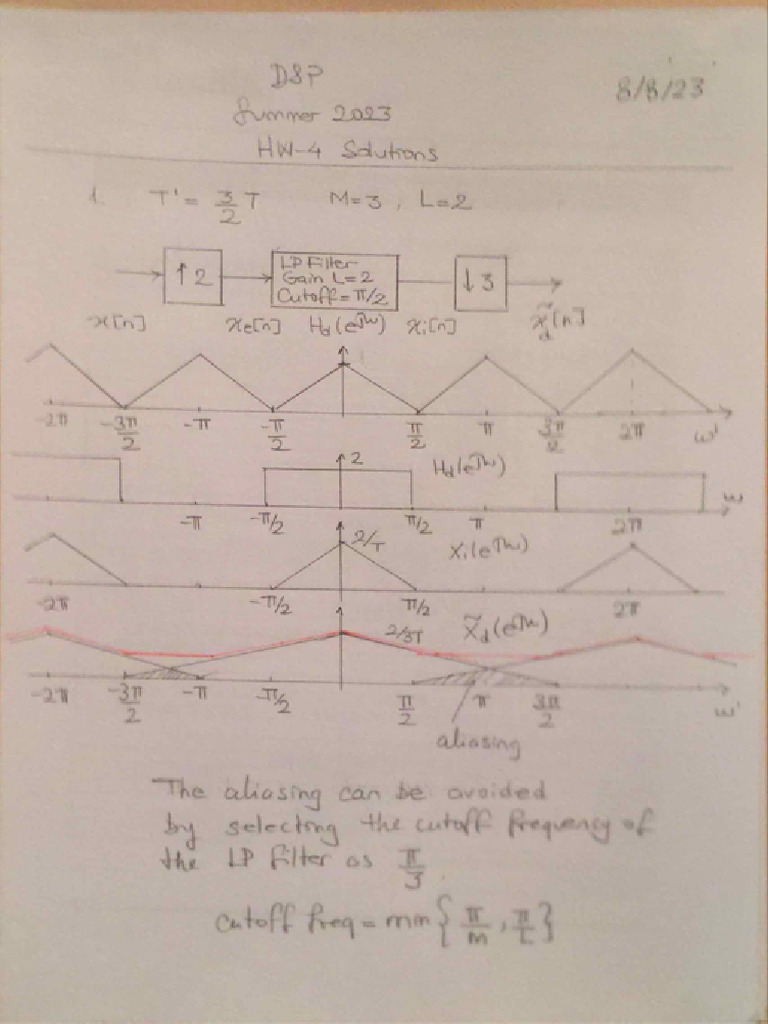 DSP
8/8/23
Summer 2023
HW-4 Solutions
1. T' = 3/2 T M=3, L=2
↑2
LP Filter
Gain L=2
Cutoff = π/2
↓3
x[n] xe[n] Hd(e^jω) xi[n] x̃d[n]
1
-2π -3π/2 -π -π/2 π/2 π 3π/2 2π ω'
2 Hd(e^jω)
-π -π/2 π/2 π 2π ω
2/T Xi(e^jω)
-2π -π/2 π/2 2π
2/3T X̃d(e^jω)
-2π -3π/2 -π -π/2 π/2 π 3π/2 ω'
aliasing
The aliasing can be avoided
by selecting the cutoff frequency of
the LP filter as π/3
cutoff freq = min{π/M, π/L}